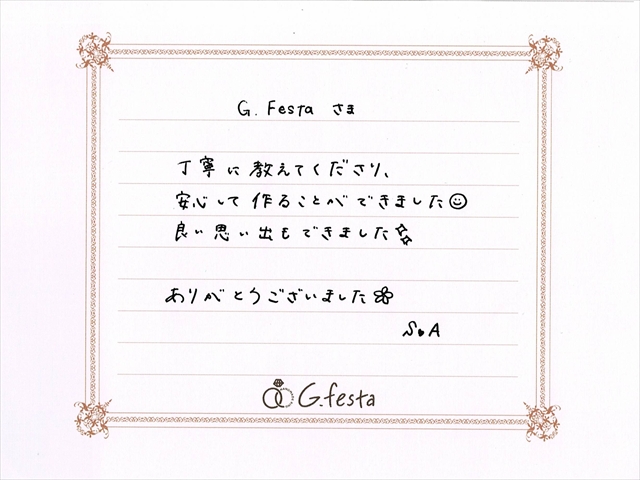 G. Festa さま
丁寧に教えてくださり、
安心して作ることができました☺
良い思い出もできました✨
ありがとうございました✿
S♥A
G.festa